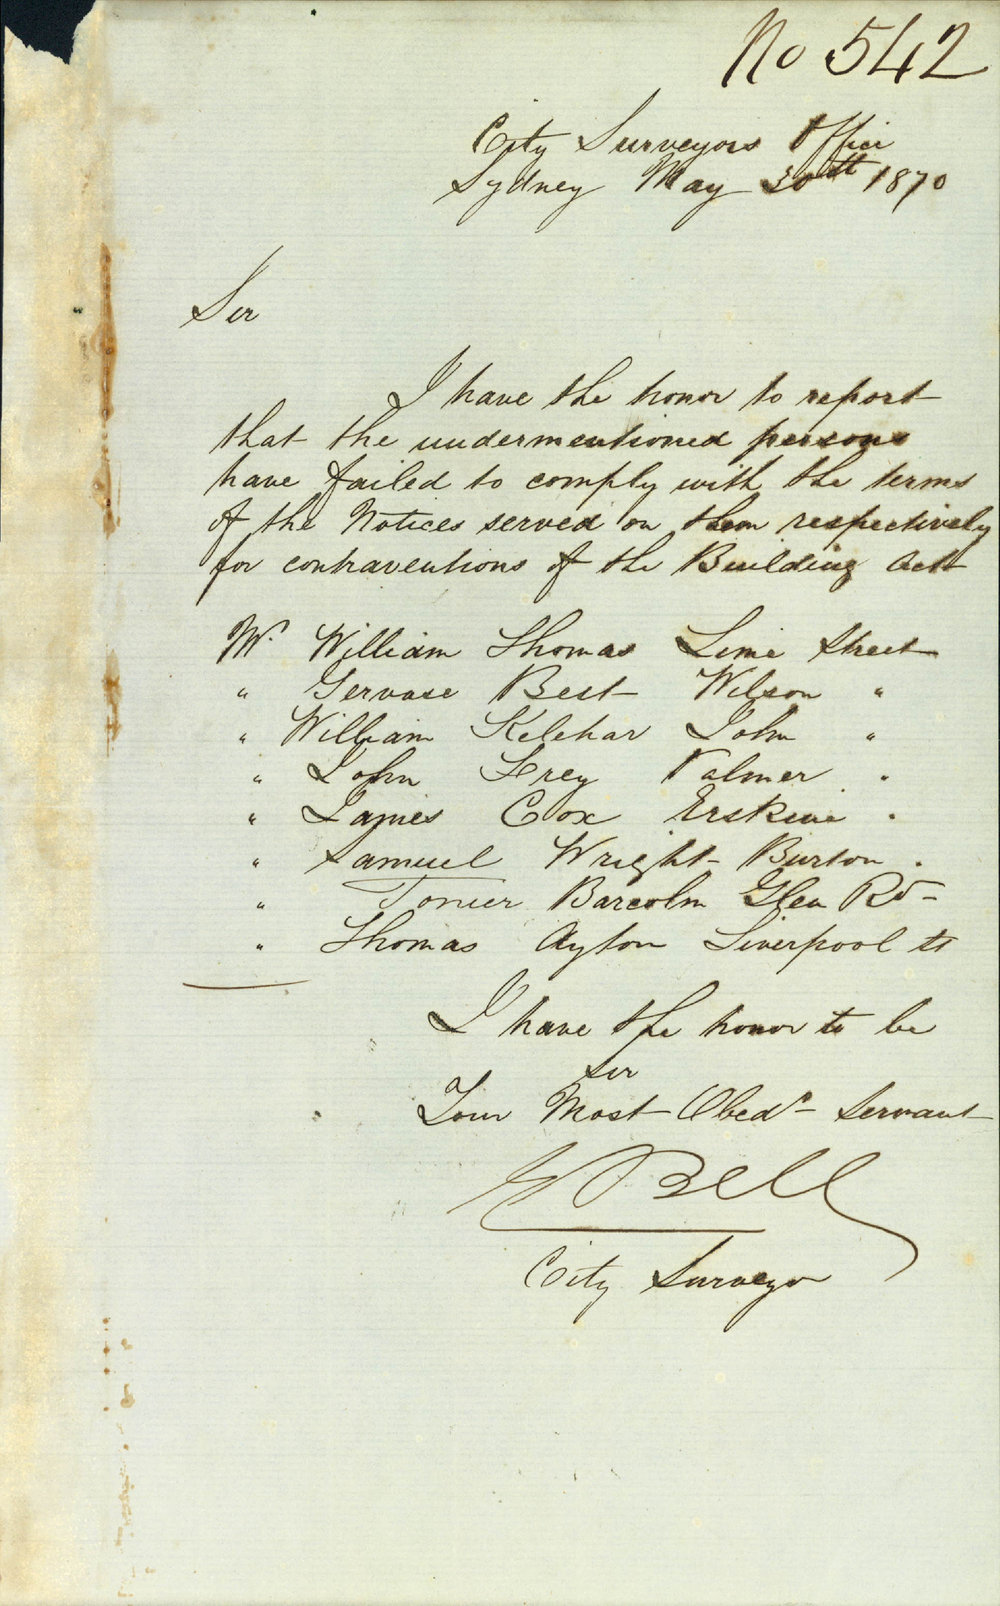 No 542
City Surveyors Office
Sydney May 30th 1870
Sir
I have the honor to report
that the undermentioned persons
have failed to comply with the terms
of the Notices served on them respectively
for contraventions of the Building Act
Mr William Thomas Lime Street
" Gervase Best Wilson "
" William Kelehar John "
" John Frey Palmer "
" James Cox Erskine "
" Samuel Wright Burton "
" Barcolm Glen Rd
" Thomas Ayton Liverpool St
I have the honor to be
Sir
Your Most Obedt Servant
E Bell
City Surveyor